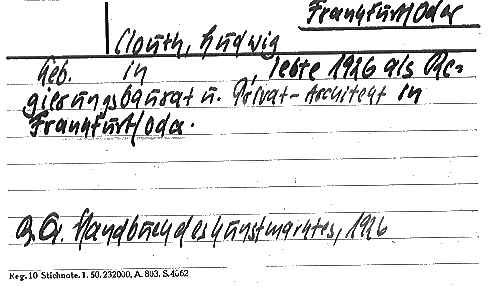 Frankfurt/Oder
Clouth, Ludwig
Geb. in , lebte 1926 als Re-
gierungsbaurat u. Privat-Architekt in
Frankfurt/Oder.
Handbuch des Kunstmarktes, 1926
Reg. 10 Stichnote. 1. 50. 232000. A. 803. S. 4062